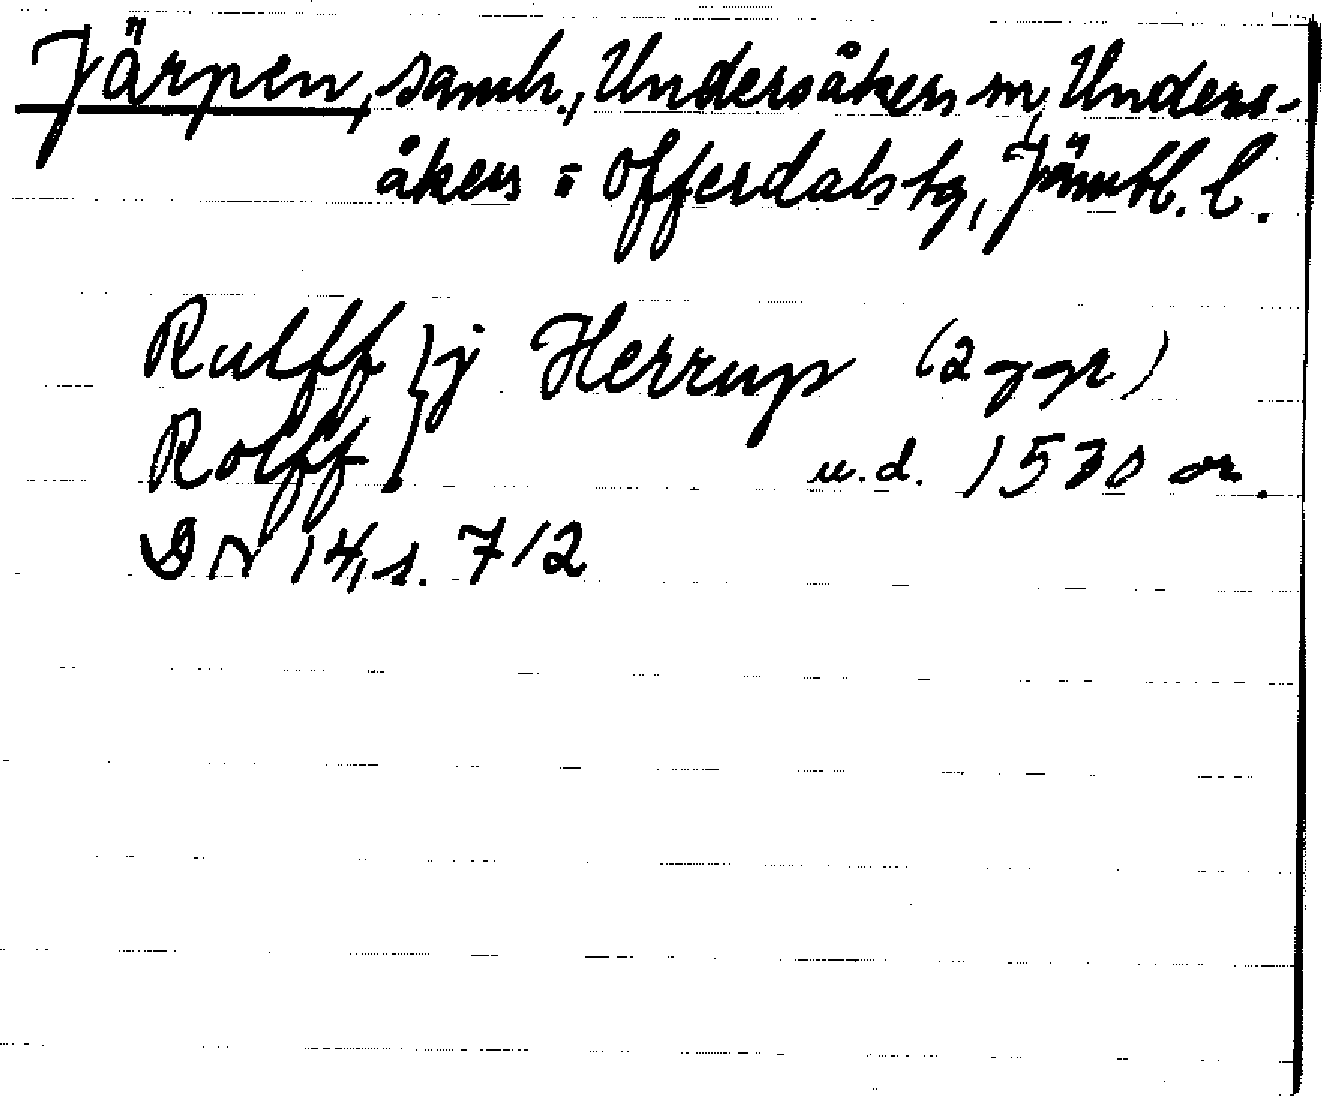 Järpen, samh., Undersåkers sn, Unders-
åkers = Offerdals tg, Jämtl. l.
Rulff } j Herrup (2 ggr)
Rolff } u.d. 1530 or.
DN 14, s. 712